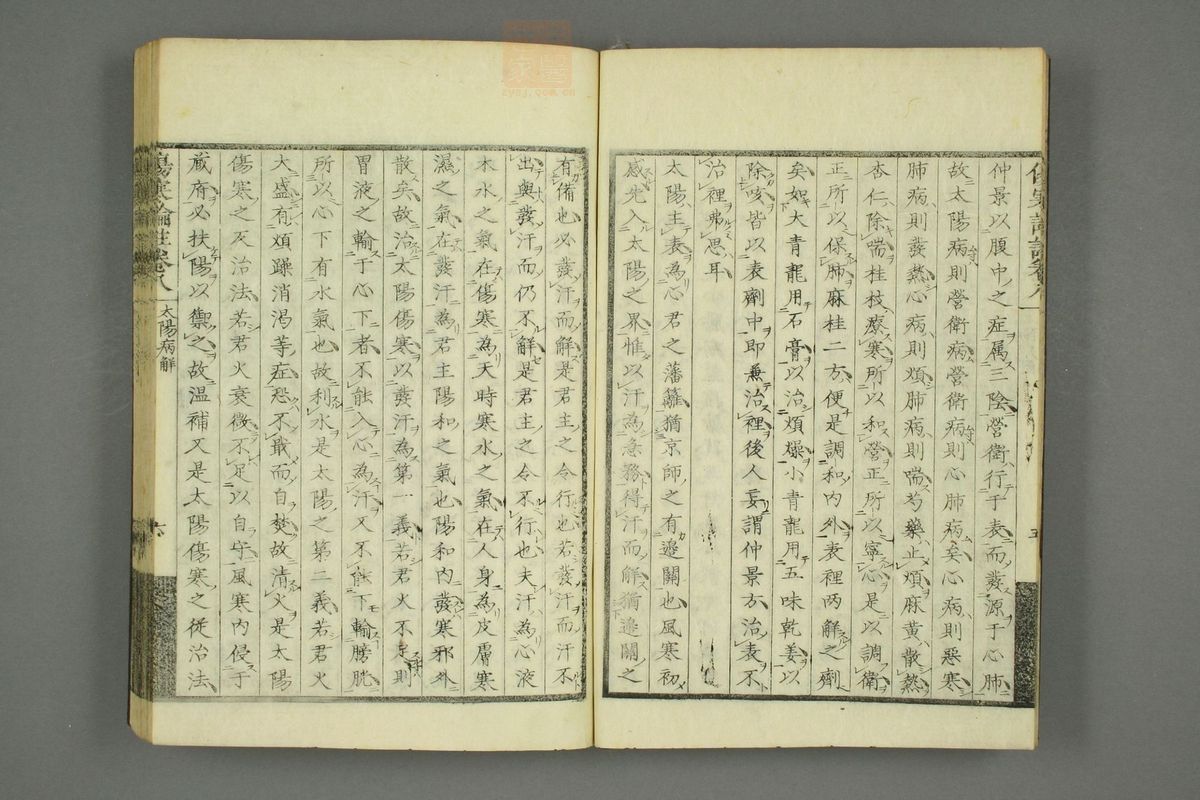 仲景以腹中之症属三陰營衛行于表而發源于心肺
故太陽病則營衛病營衛病則心肺病矣心病則惡寒
肺病則發熱心病則煩肺病則喘芍藥止煩麻黄散熱
杏仁除喘桂枝療寒所以和營正所以寧心是以調衛
正所以保肺麻桂二方便是調和内外表裡两解之劑
矣如大青龍用石膏以治煩燥小青龍用五味乾姜以
除咳皆以表劑中即兼治裡後人妄謂仲景方治表不
治裡弗思耳
太陽主表為心君之藩籬猶京師之有邊關也風寒初
感先入太陽之界惟以汗為急務得汗而解猶邊關之
五
有備也必發汗而解是君主之令行也若發汗而汗不
出與發汗而仍不解是君主之令不行也夫汗為心液
本水之氣在傷寒為天時寒水之氣在人身為皮膚寒
濕之氣在發汗為君主陽和之氣也陽和内發寒邪外
散矣故治太陽傷寒以發汗為第一義若君火不則
胃液之輸于心下者不能入心為汗又不能下輸膀胱
所以心下有水氣也故利水是太陽之第二義若君火
大盛有煩躁消渴等症恐不戢而自焚故清火是太陽
傷寒之反治法若君火衰微不足以自守風寒内侵于
蔵府必扶陽以禦之故温補又是太陽傷寒之從治法
傷寒論註卷八
太陽病解
六